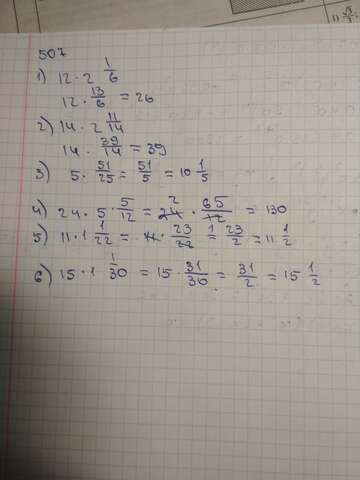 507
1) 12 · 2 1/6
12 · 13/6 = 26
2) 14 · 2 11/14
14 · 39/14 = 39
3) 5 · 51/25 = 51/5 = 10 1/5
4) 24 · 5 5/12 = 24 2 · 65/12 = 130
5) 11 · 1 1/22 = 11 · 23/22 1 = 23/2 = 11 1/2
6) 15 · 1 1/30 = 15 · 31/30 = 31/2 = 15 1/2